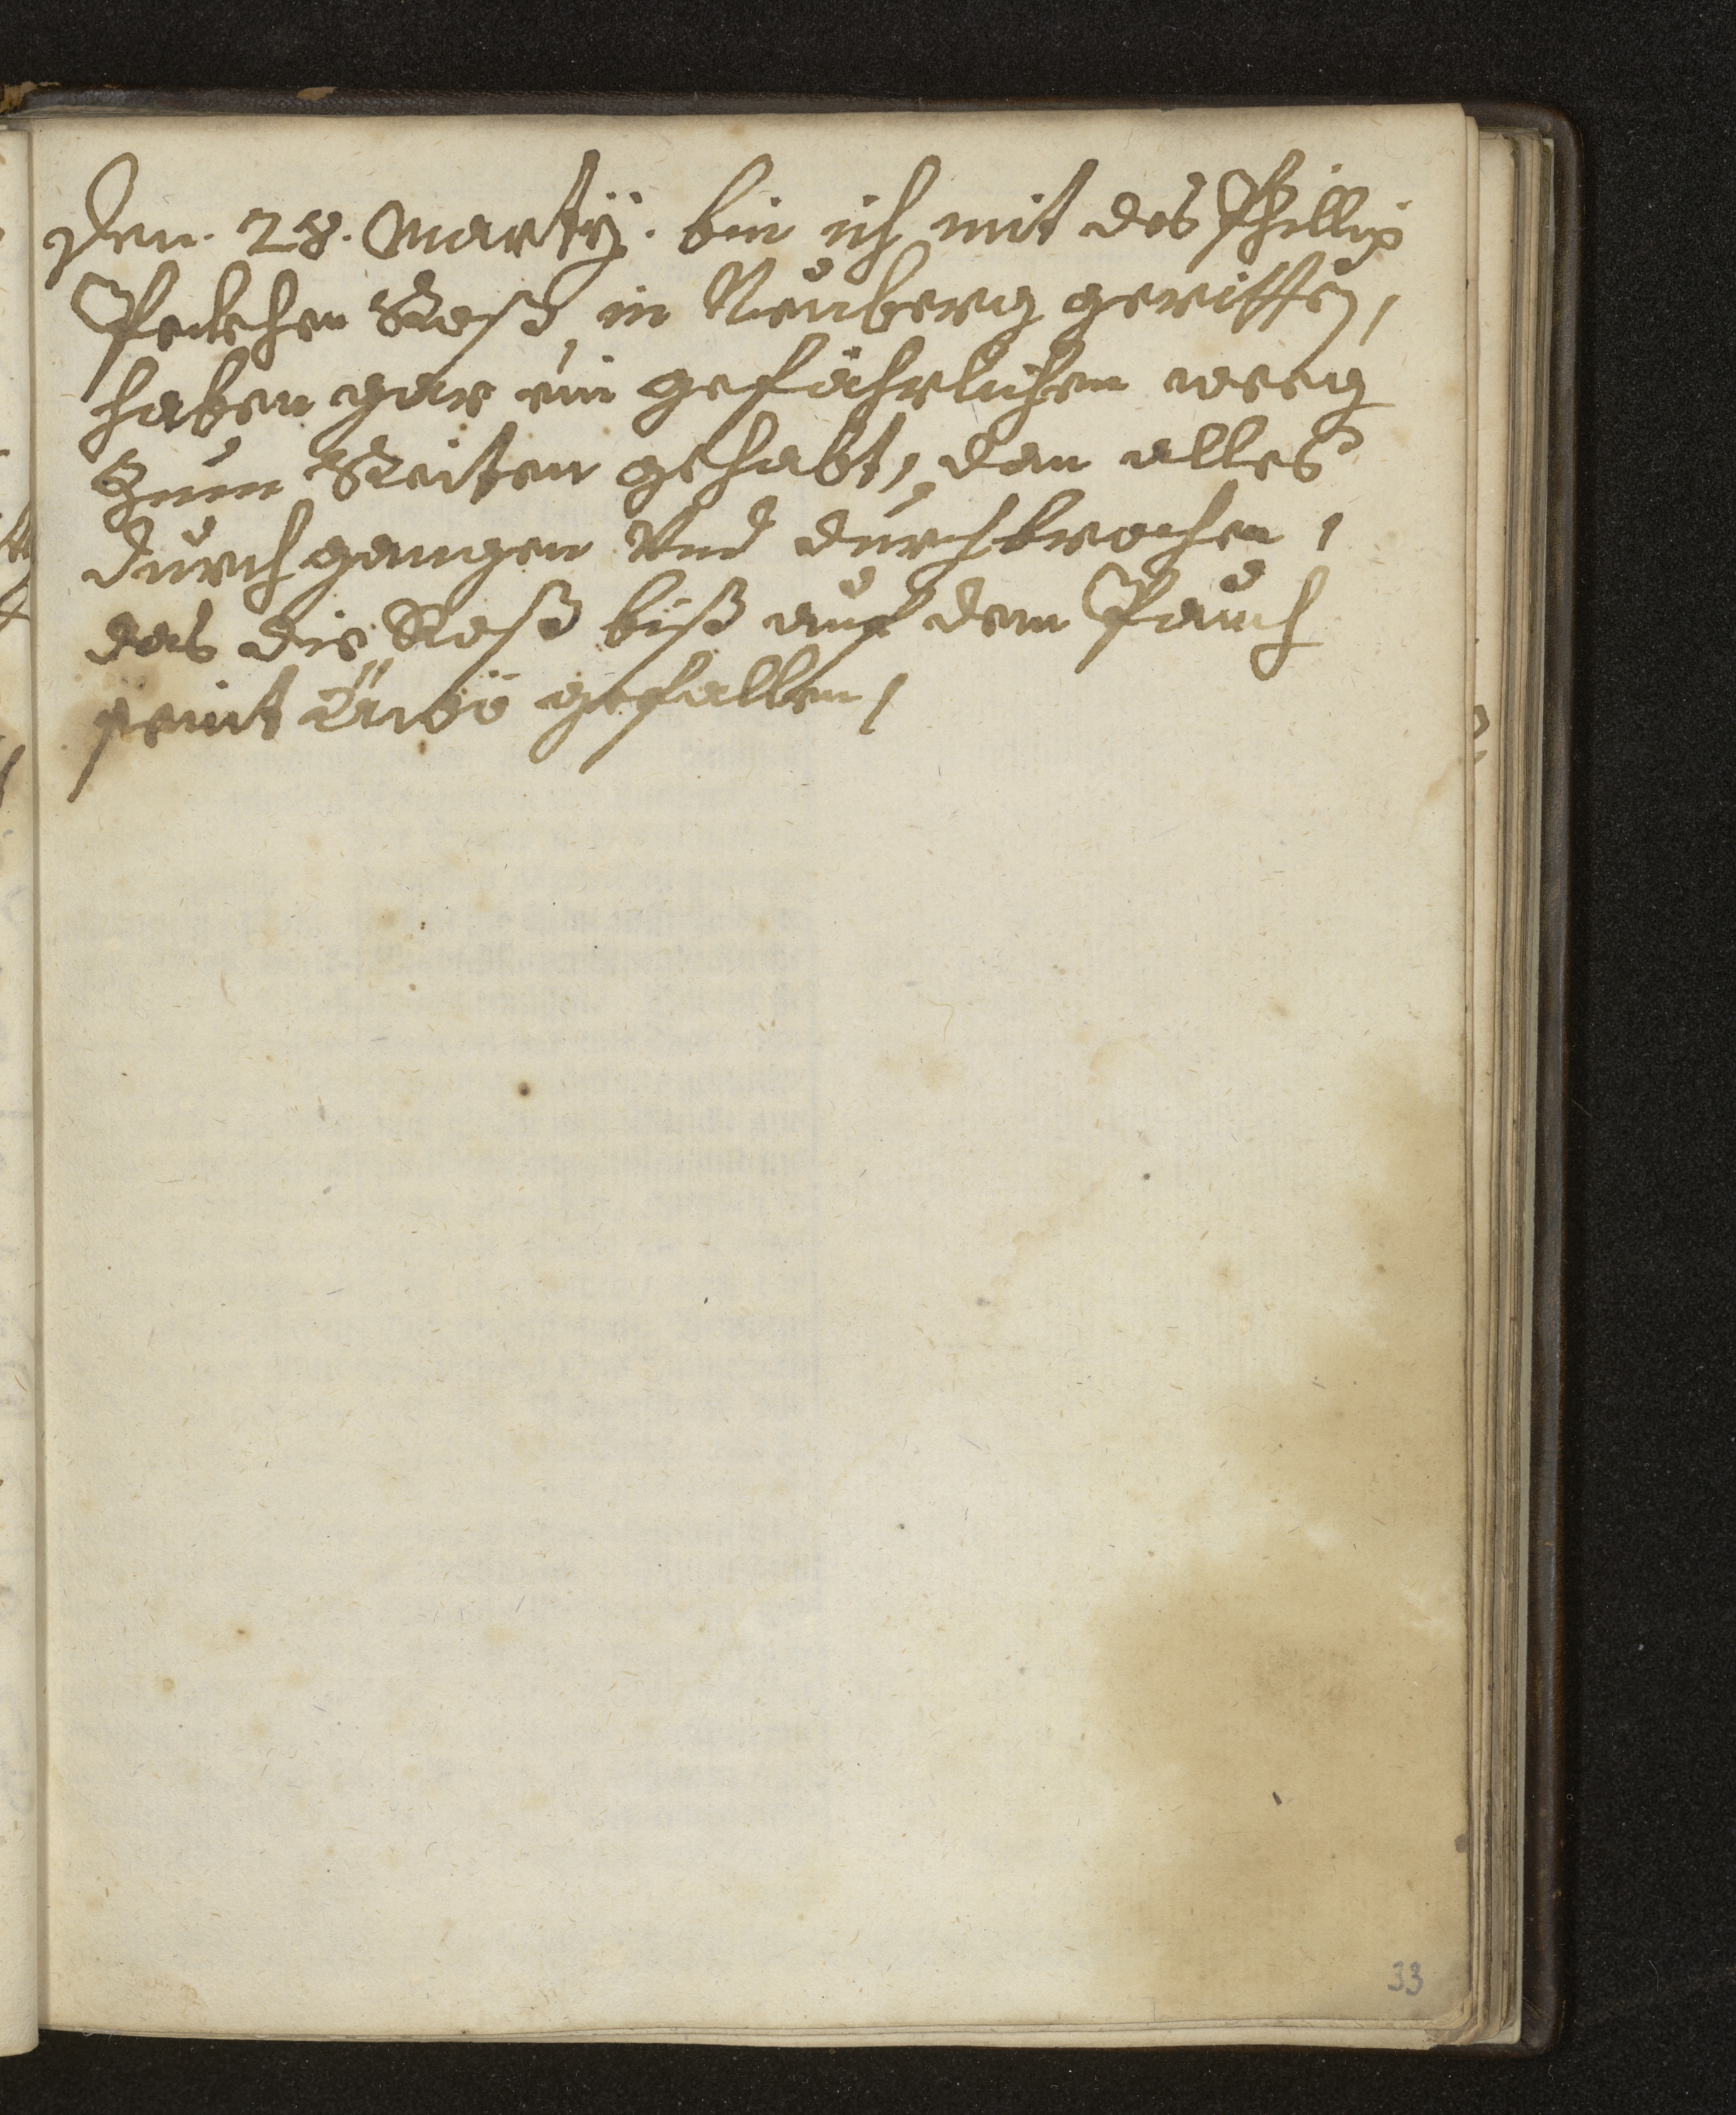 Den. 28. Martÿ. bin ich mit des Phillip
Peckhen Roß, in Neuberg geritten,
haben gar ein gefährlichen weeg
Zum Reiten gehabt, dan alles
durchgangen Vnd durchbrochen,
das die Roß biß auf dem Pauch
seint gefallen,
33